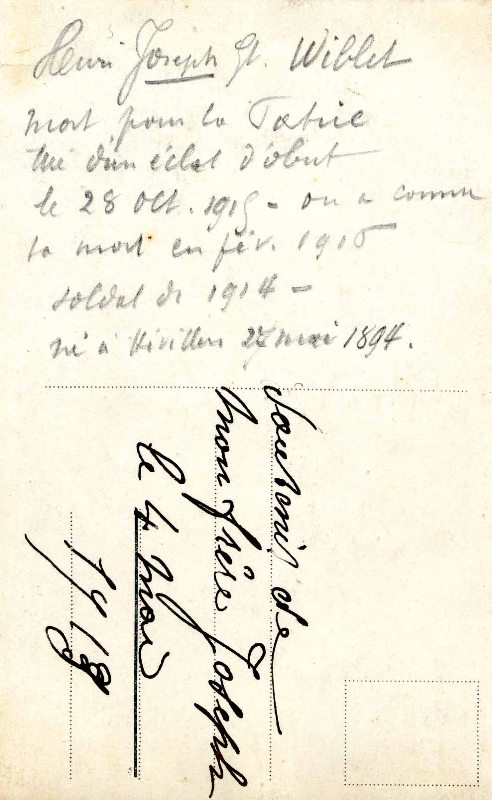 Henri Joseph Gt. Willet
mort pour la Patrie
tué d'un éclat d'obut
le 28 Oct. 1915 - on a connu
sa mort en fév. 1916
soldat de 1914 -
né à 27 mai 1894.
Souvenir de
mon frère Joseph
le 4 Mai
1918